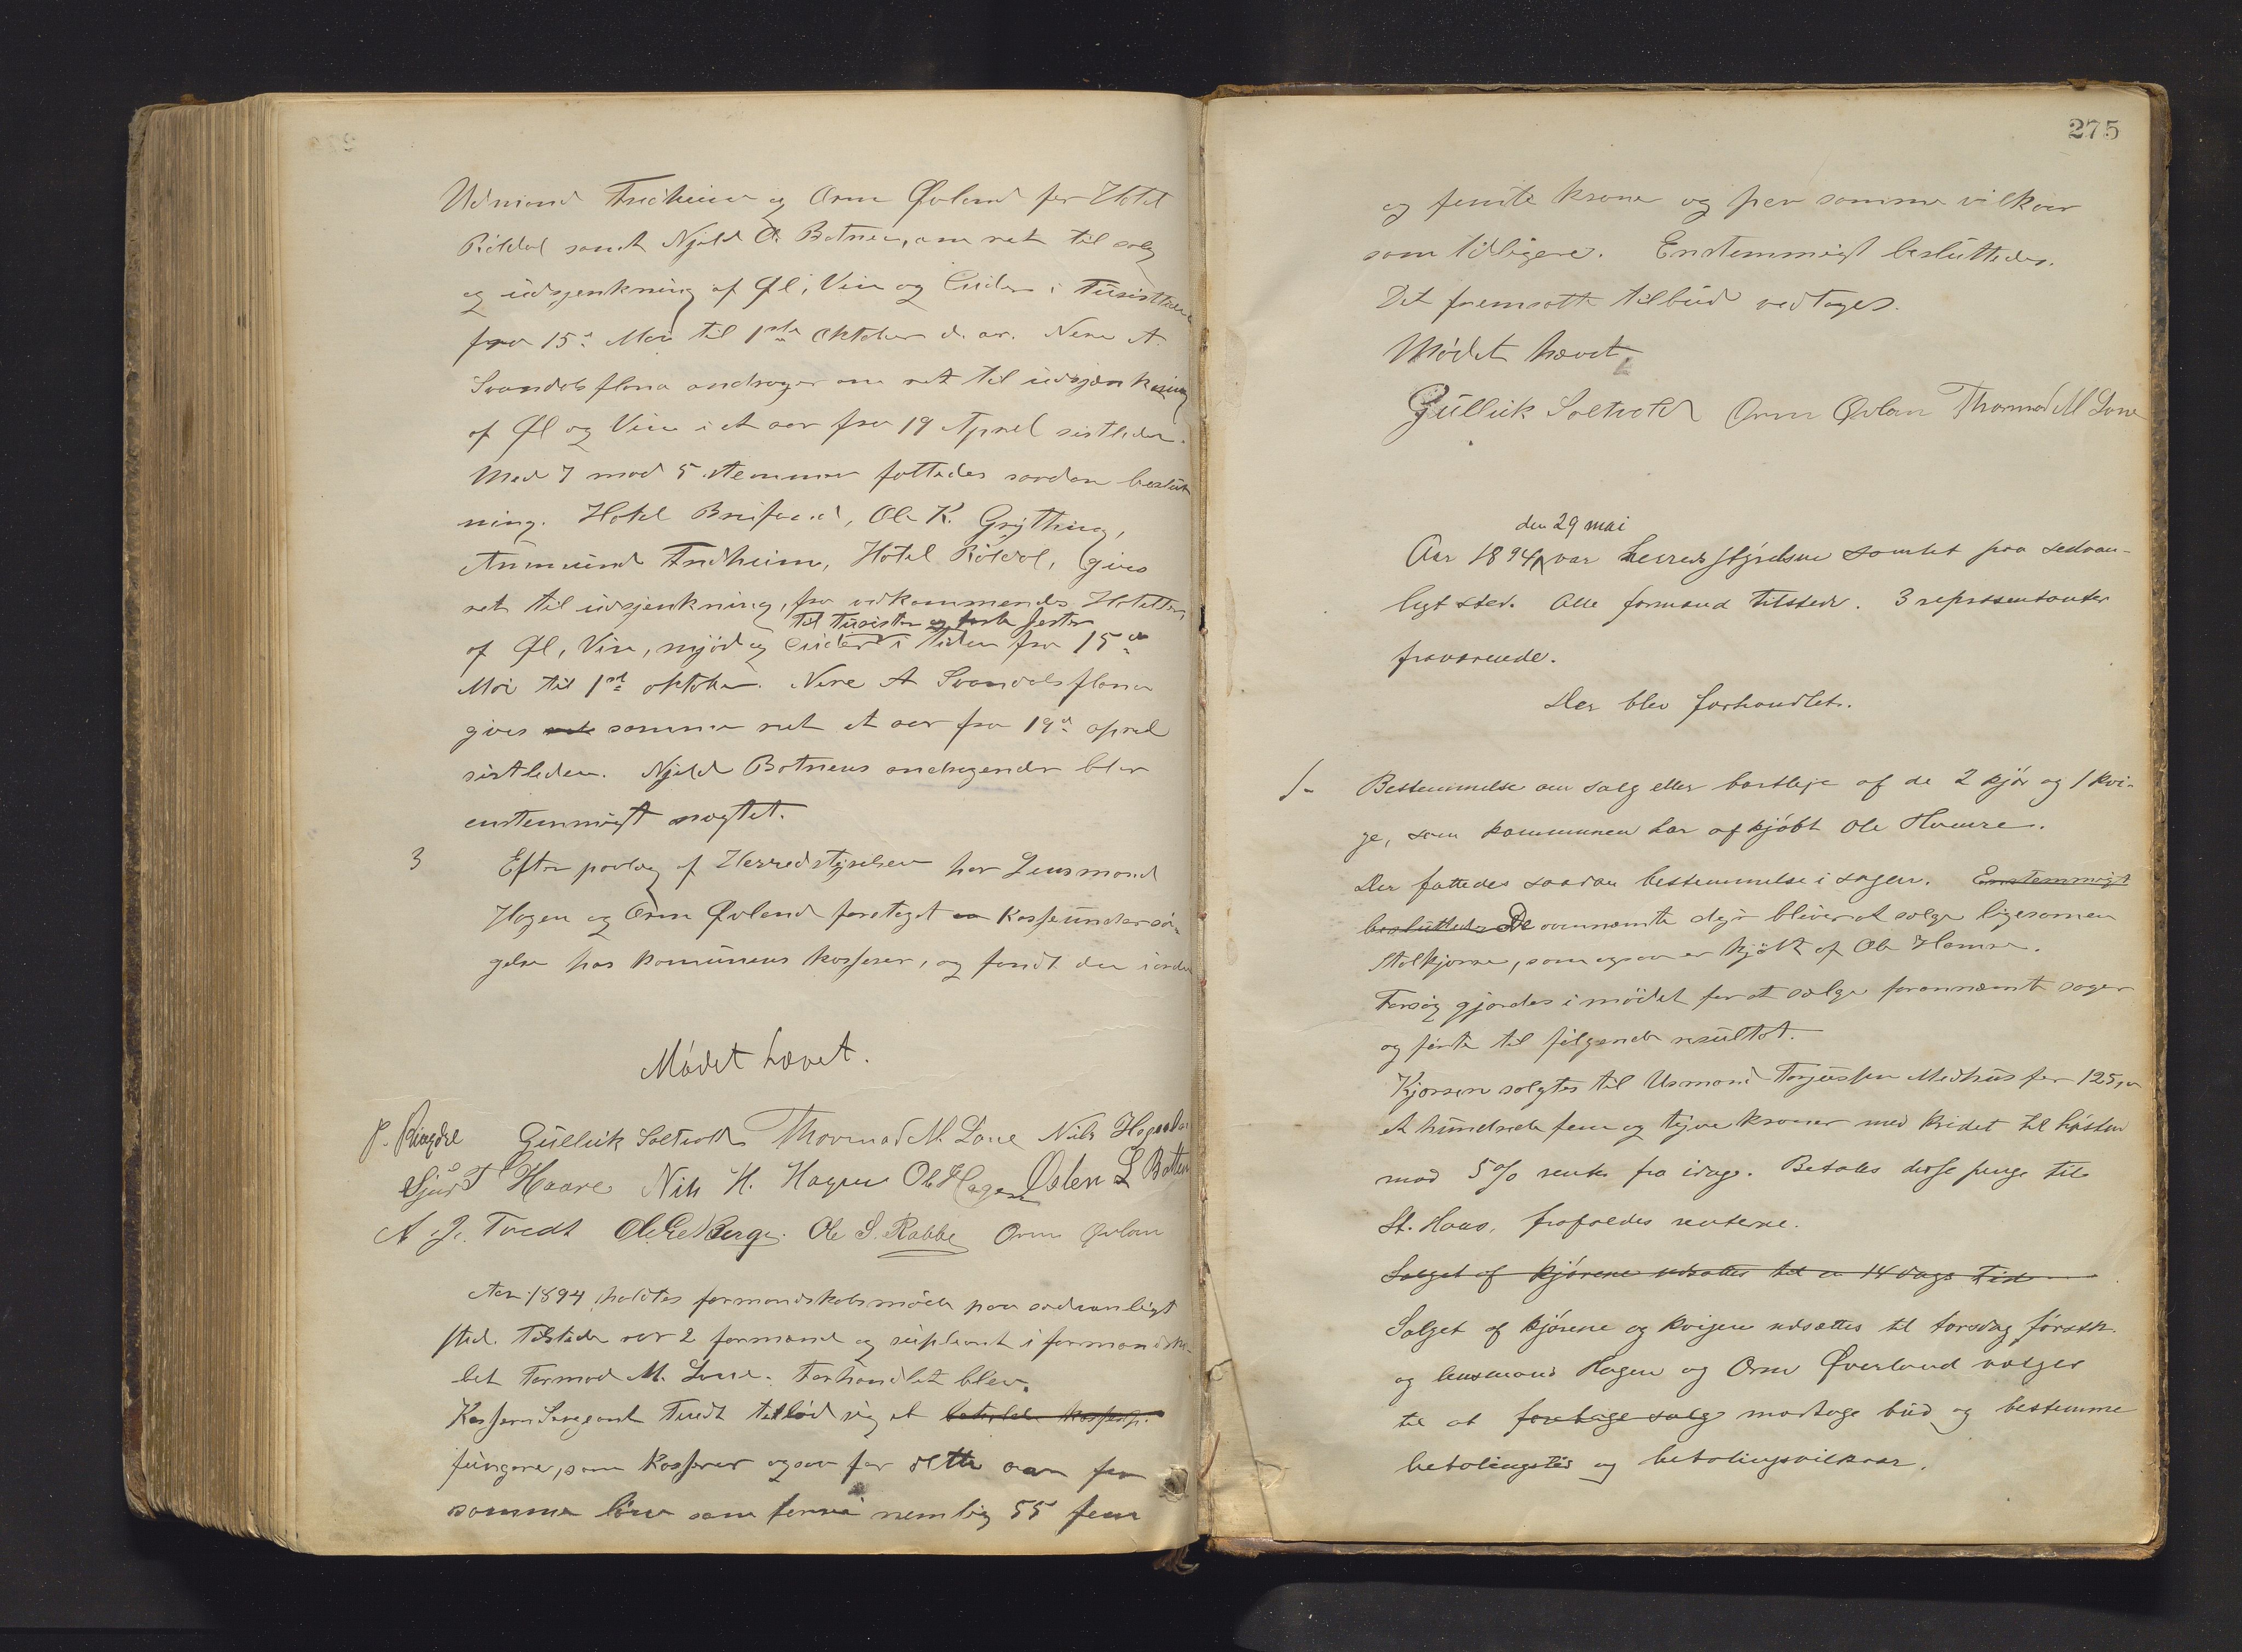 Udmond Fredheim og Orm Øvland for Hotel
Röldal samt Njeld A. Botnen, om ret til salg
og udsjenkning af Øl, Vin og Cider i Turisttiden
fra 15de Mai til 1ste Oktober d. ar. Nere A.
Svandalsflona andrager om ret til udsjænkning
af Øl og Vin i et aar fra 19 April sistleden.
Med 7 mod 5 stemmer fattedes saadan beslut
ning. Hotel Breifond, Ole K. Grytting,
Aumund Fredheim, Hotel Röldal, gives
ret til udsjenkning, fra vedkommende Hoteller,
til turister og faste gester
af Øl, Vin, mjød og Cider i tiden fra 15de
Mai til 1ste oktober. Nere A Svandalsflona
gives ret samme ret et aar fra 19de april
sistleden. Njeld Botnens andragende blev
enstemmigt nægtet.
3 Efter paalæg af Herredstyrelsen har Lensmand
Hagen og Orm Øvland foretaget en Kasseundersø-
gelse hos komunens kasserer, og fandt den i orden
Mødet hævet.
P. Ringdal Gullik Saltvold Thormod M. Lone Nils
Sjur T Haare Nils H. Hagen Ole Hagen Østen L Botten
A. J. Tvedt Ole E Berge. Ole S. Rabbe Orm Øvlan
Aar 1894 holdtes formandskabsmøde paa sædvanligt
sted. Tilstede var 2 formænd og supleant i formandska-
bet Tormod M. Lone. Forhandlet blev.
Kasserer Sergeant Tvedt tilbød sig at
fungere, som kasserer ogsaa for dette aar for
samme løn som forrige nemlig 55 fem
275
og femti kroner og paa samme vilkaar
som tidligere. Enstemmigt besluttedes.
Det fremsatte tilbud vedtages.
Mødet hævet
Gullik Saltvold Orm Øvlan Thormod M Lone
den 29 mai
Aar 1894 var Herredsstyrelsen samlet paa sedvan-
ligt sted. Alle formænd tilstede. 3 representanter
fraværende.
Der blev forhandlet.
1- Bestemmelse om salg eller bortleje af de 2 kjør og 1 kvi-
ge, som kommunen har afkjøbt Ole Hamre.
Der fattedes saadan bestemmelse i sagen. Enstemmigt
besluttedes De ovennæmte dyr bliver at sælge ligesom en
stolkjærre, som ogsaa er kjøbt af Ole Hamre.
Forsøg gjordes i mødet for at sælge forannæmte sager
og førte til følgende resultat.
Kjærren solgtes til Usmond Torjussen Medhus for 125,00
et hundrede fem og tyve kroner med kridet til høsten
mod 5 % rente fra idag. Betales disse penge til
St. Hans, frafaldes renterne.
Salget af kjørene udsættes til en 14 dags tid
Salget af kjørene og kvigen udsættes til torsdag førstk.
og lensmand Hagen og Orm Øverland vælges
til at foretage salg modtage bud og bestemme
betalingstid og betalingsvilkaar.